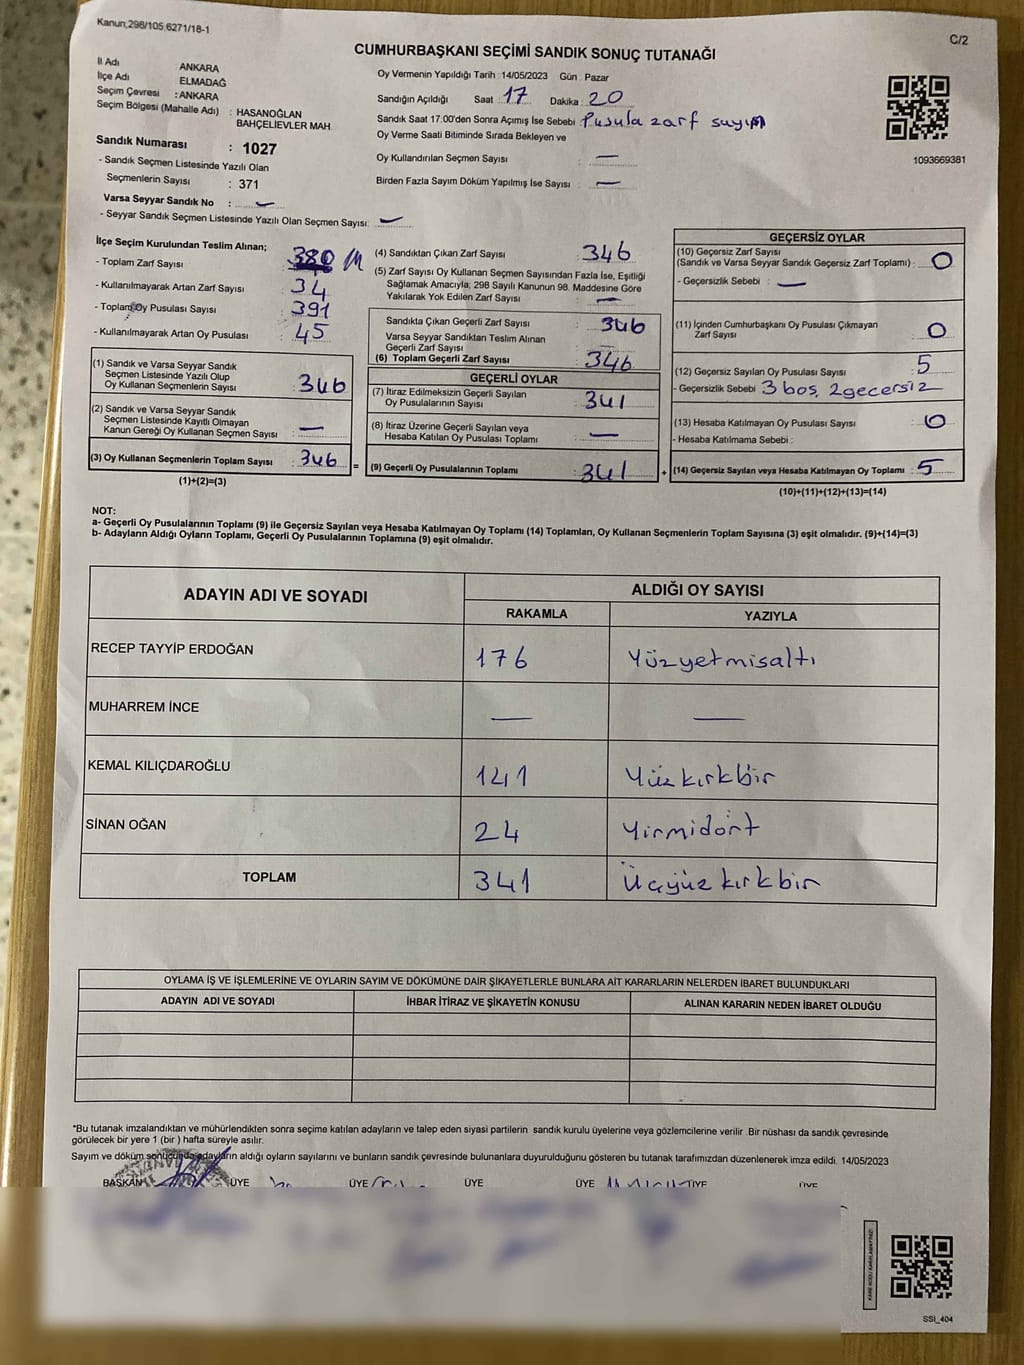 Kanun,298/105,6271/18-1
C/2
CUMHURBAŞKANI SEÇİMİ SANDIK SONUÇ TUTANAĞI
İl Adı ANKARA
İlçe Adı ELMADAĞ
Seçim Çevresi : ANKARA
Seçim Bölgesi (Mahalle Adı) : HASANOĞLAN
BAHÇELİEVLER MAH.
Sandık Numarası : 1027
- Sandık Seçmen Listesinde Yazılı Olan
Seçmenlerin Sayısı : 371
Varsa Seyyar Sandık No : —
- Seyyar Sandık Seçmen Listesinde Yazılı Olan Seçmen Sayısı: —
Oy Vermenin Yapıldığı Tarih : 14/05/2023 Gün : Pazar
Sandığın Açıldığı Saat : 17 Dakika : 20
Sandık Saat 17:00'den Sonra Açımış İse Sebebi : Pusula zarf sayım
Oy Verme Saati Bitiminde Sırada Bekleyen ve
Oy Kullandırılan Seçmen Sayısı : —
Birden Fazla Sayım Döküm Yapılmış İse Sayısı : —
1093669381
İlçe Seçim Kurulundan Teslim Alınan;
- Toplam Zarf Sayısı : 380
- Kullanılmayarak Artan Zarf Sayısı : 34
- Toplam Oy Pusulası Sayısı : 391
- Kullanılmayarak Artan Oy Pusulası : 45
(1) Sandık ve Varsa Seyyar Sandık
Seçmen Listesinde Yazılı Olup
Oy Kullanan Seçmenlerin Sayısı : 346
(2) Sandık ve Varsa Seyyar Sandık
Seçmen Listesinde Kayıtlı Olmayan
Kanun Gereği Oy Kullanan Seçmen Sayısı : —
(3) Oy Kullanan Seçmenlerin Toplam Sayısı : 346 =
(1)+(2)=(3)
(4) Sandıktan Çıkan Zarf Sayısı : 346
(5) Zarf Sayısı Oy Kullanan Seçmen Sayısından Fazla İse, Eşitliği
Sağlamak Amacıyla, 298 Sayılı Kanunun 98. Maddesine Göre
Yakılarak Yok Edilen Zarf Sayısı : —
Sandıkta Çıkan Geçerli Zarf Sayısı : 346
Varsa Seyyar Sandıktan Teslim Alınan
Geçerli Zarf Sayısı :
(6) Toplam Geçerli Zarf Sayısı : 346
GEÇERLİ OYLAR
(7) İtiraz Edilmeksizin Geçerli Sayılan
Oy Pusulalarının Sayısı : 341
(8) İtiraz Üzerine Geçerli Sayılan veya
Hesaba Katılan Oy Pusulası Toplamı : —
(9) Geçerli Oy Pusulalarının Toplamı : 341 +
GEÇERSİZ OYLAR
(10) Geçersiz Zarf Sayısı
(Sandık ve Varsa Seyyar Sandık Geçersiz Zarf Toplamı) : 0
- Geçersizlik Sebebi : —
(11) İçinden Cumhurbaşkanı Oy Pusulası Çıkmayan
Zarf Sayısı : 0
(12) Geçersiz Sayılan Oy Pusulası Sayısı : 5
- Geçersizlik Sebebi 3 boş, 2 gecersiz
(13) Hesaba Katılmayan Oy Pusulası Sayısı : 0
- Hesaba Katılmama Sebebi :
(14) Geçersiz Sayılan veya Hesaba Katılmayan Oy Toplamı : 5
(10)+(11)+(12)+(13)=(14)
NOT:
a- Geçerli Oy Pusulalarının Toplamı (9) ile Geçersiz Sayılan veya Hesaba Katılmayan Oy Toplamı (14) Toplamları, Oy Kullanan Seçmenlerin Toplam Sayısına (3) eşit olmalıdır. (9)+(14)=(3)
b- Adayların Aldığı Oyların Toplamı, Geçerli Oy Pusulalarının Toplamına (9) eşit olmalıdır.
ADAYIN ADI VE SOYADI ALDIĞI OY SAYISI
RAKAMLA YAZIYLA
RECEP TAYYİP ERDOĞAN 176 Yüzyetmisaltı
MUHARREM İNCE — —
KEMAL KILIÇDAROĞLU 141 Yüzkırkbir
SİNAN OĞAN 24 Yirmidört
TOPLAM 341 Üçyüzkırkbin
OYLAMA İŞ VE İŞLEMLERİNE VE OYLARIN SAYIM VE DÖKÜMÜNE DAİR ŞİKAYETLERLE BUNLARA AİT KARARLARIN NELERDEN İBARET BULUNDUKLARI
ADAYIN ADI VE SOYADI İHBAR İTİRAZ VE ŞİKAYETİN KONUSU ALINAN KARARIN NEDEN İBARET OLDUĞU
*Bu tutanak imzalandıktan ve mühürlendikten sonra seçime katılan adayların ve talep eden siyasi partilerin sandık kurulu üyelerine veya gözlemcilerine verilir .Bir nüshası da sandık çevresinde
görülecek bir yere 1 (bir ) hafta süreyle asılır.
Sayım ve döküm sonucunda adayların aldığı oyların sayılarını ve bunların sandık çevresinde bulunanlara duyurulduğunu gösteren bu tutanak tarafımızdan düzenlenerek imza edildi. 14/05/2023
BAŞKAN ÜYE ÜYE ÜYE ÜYE ÜYE ÜYE
SSI_404